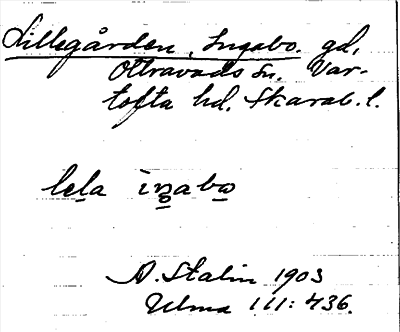 Lillegården, Ingabo. gd,
Ottravads sn. Var-
tofta hd. Skarab. l.
lela ingabo
A. Stalin 1903
Ulma 111: 436.